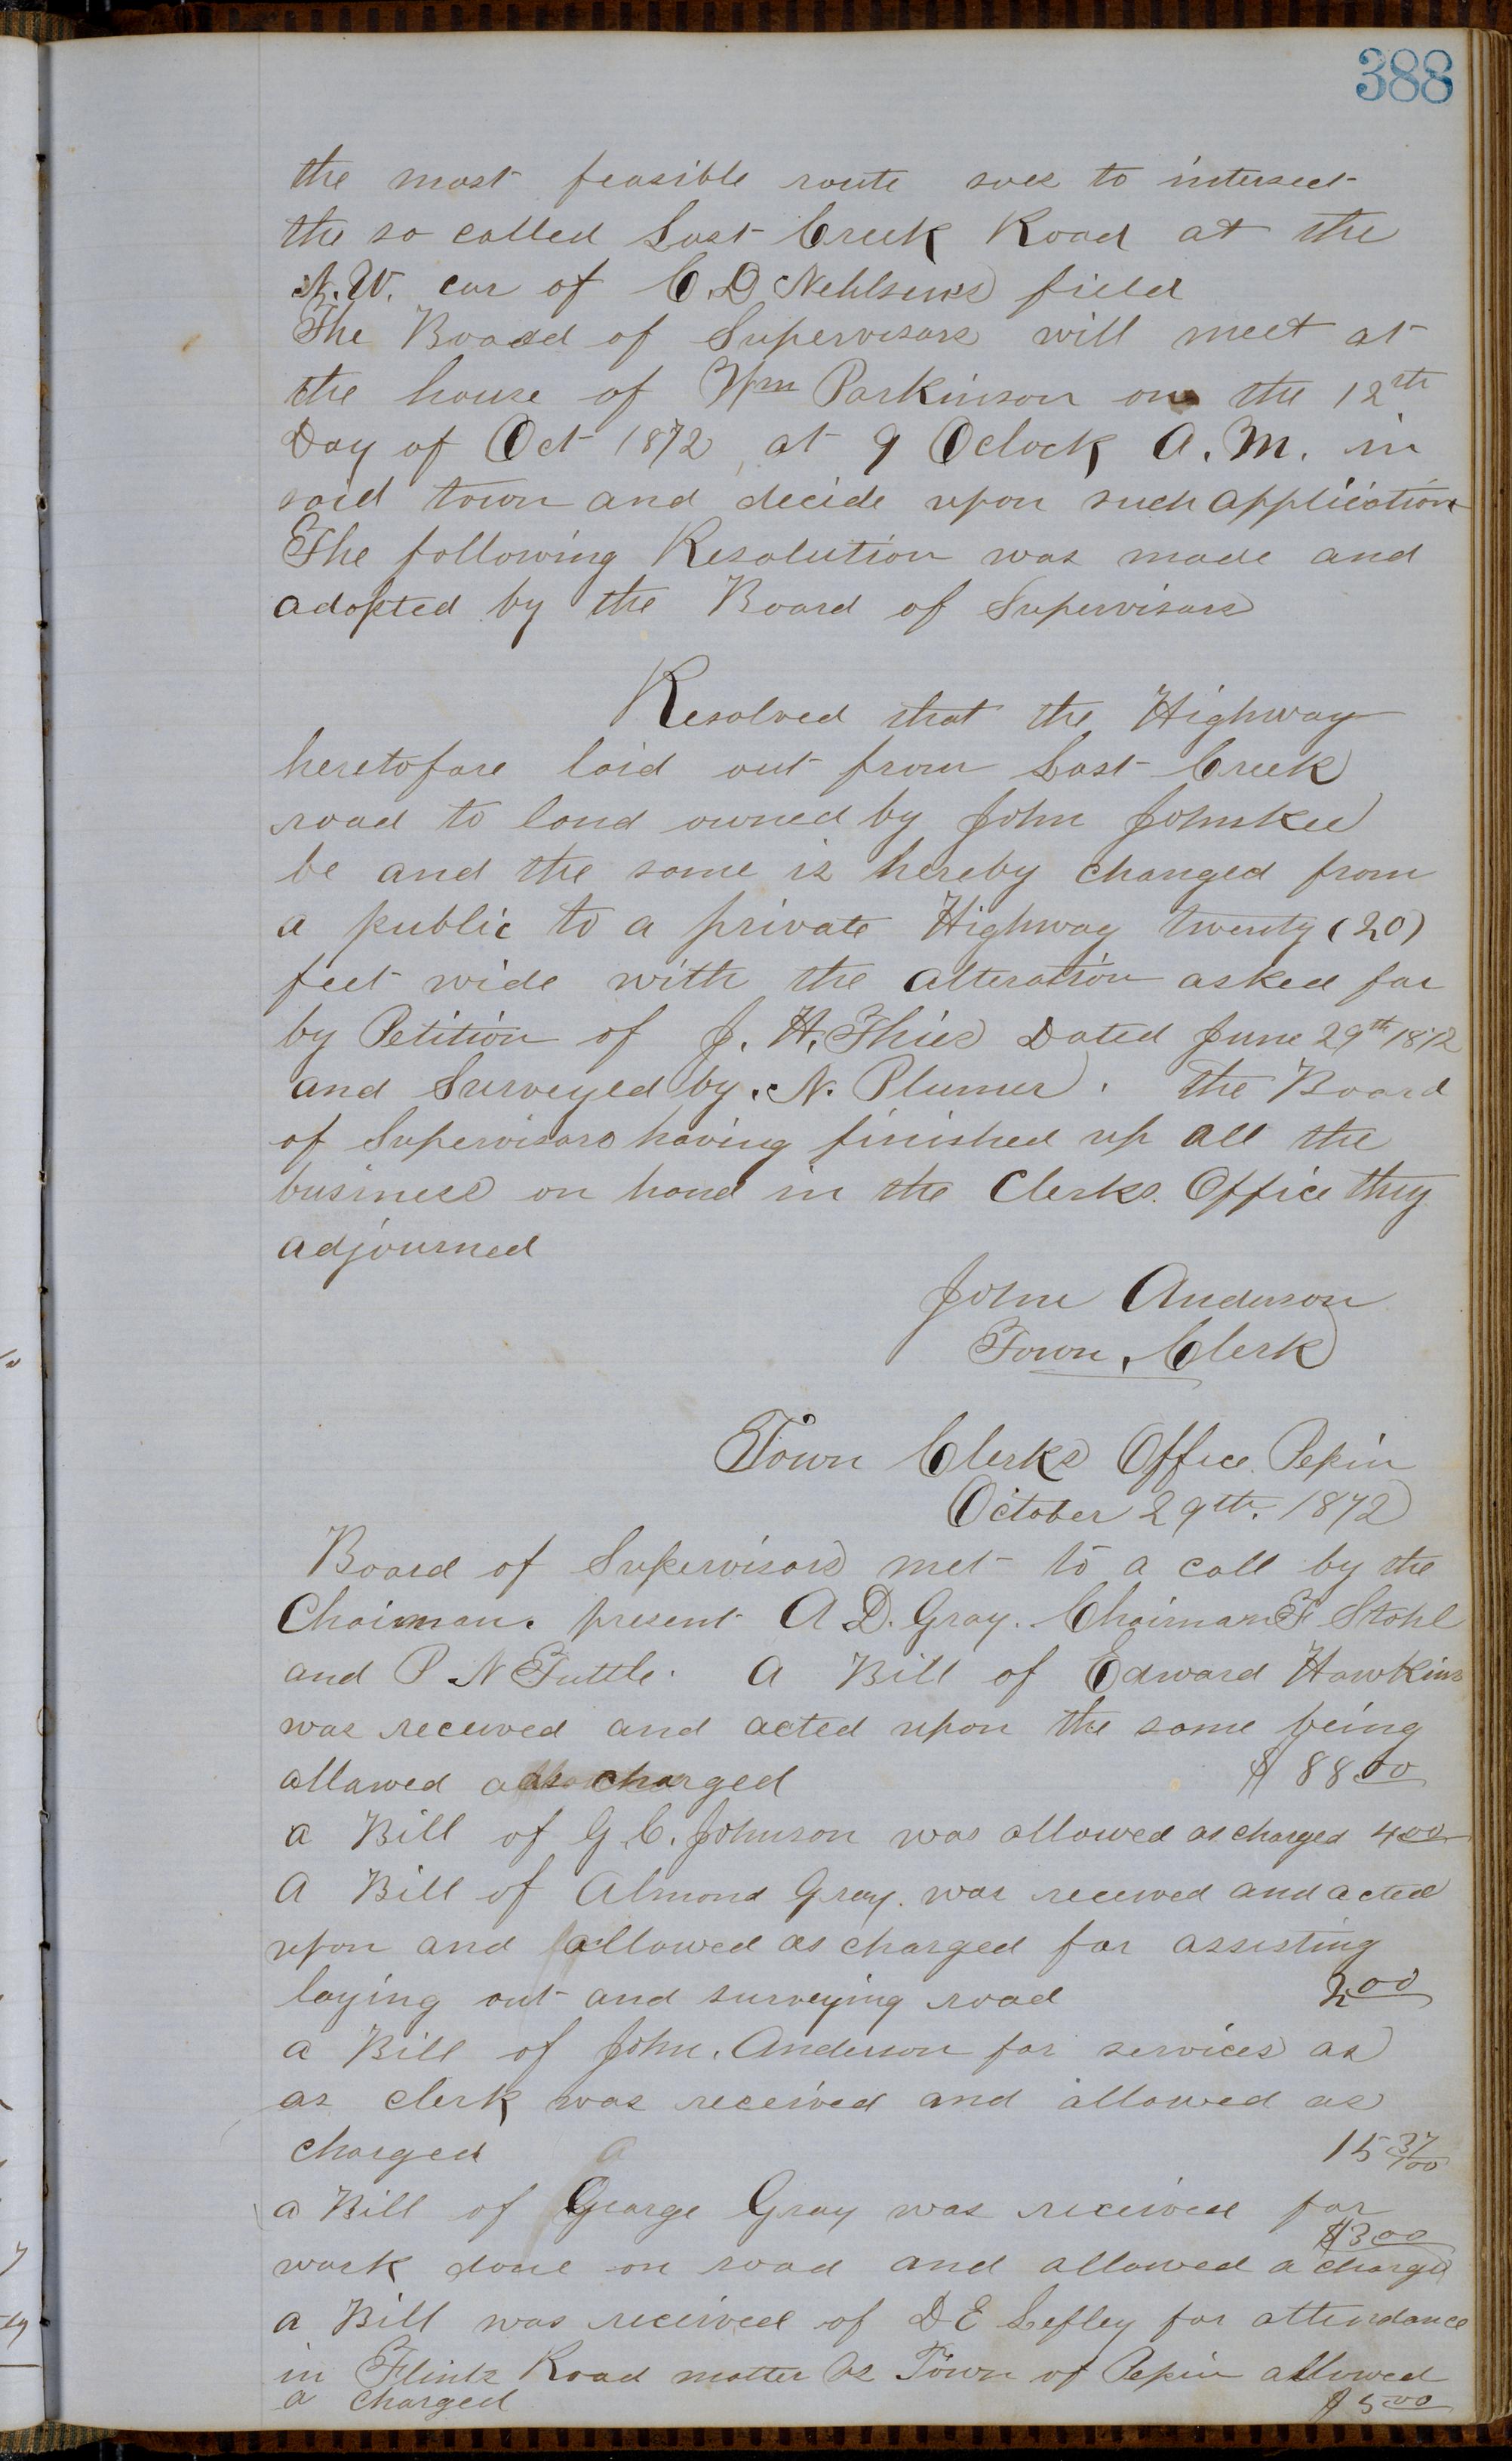 388
the most feasible route soes to intersect
the so called Lost Creek Road at the
N.W. cor of C. D Nehlsens field
The Boadd of Supervisors will meet at
the house of Wm Parkinson on the 12th
Day of Oct 1872, at 9 Oclock A.M. in
said town and decide upon such application
The following Resolution was made and
adopted by the Board of Supervisors
Resolved that the Highway
heretofore laid out from Lost Creek
road to land owned by John
be and the same is hereby changed from
a public to a private Highway twenty (20)
feet wide with the alteration asked for
by Petition of J. H. Thies Dated June 29th 1872
and Surveyed by. N. Plumer. The Board
of Supervisors having finished up all the
business on hand in the Clerks. Office they
adjourned
John Anderson
Town Clerk
Town Clerks Office. Pepin
October 29th. 1872
Board of Supervisors met to a call by the
Chairman. present A D. Gray. Chairman F Stohl
and P N Tuttle. A Bill of Edward Hawkins
was received and acted upon the same being
allowed as charged $ 88 00
a Bill of G C. Johnson was allowed as charged 4 00
A Bill of Almond Gray. was received and acted
upon and allowed as charged for assisting
laying out and surveying road 2 00
a Bill of John. Anderson for services as
as clerk was received and allowed as
charged 15 37/100
a Bill of George Gray was received for
$3 00
work done on road and allowed a charged
a Bill was received of D E Lefley for attendance
in Flints Road matter Town of Pepin allowed
a charged $ 5 00